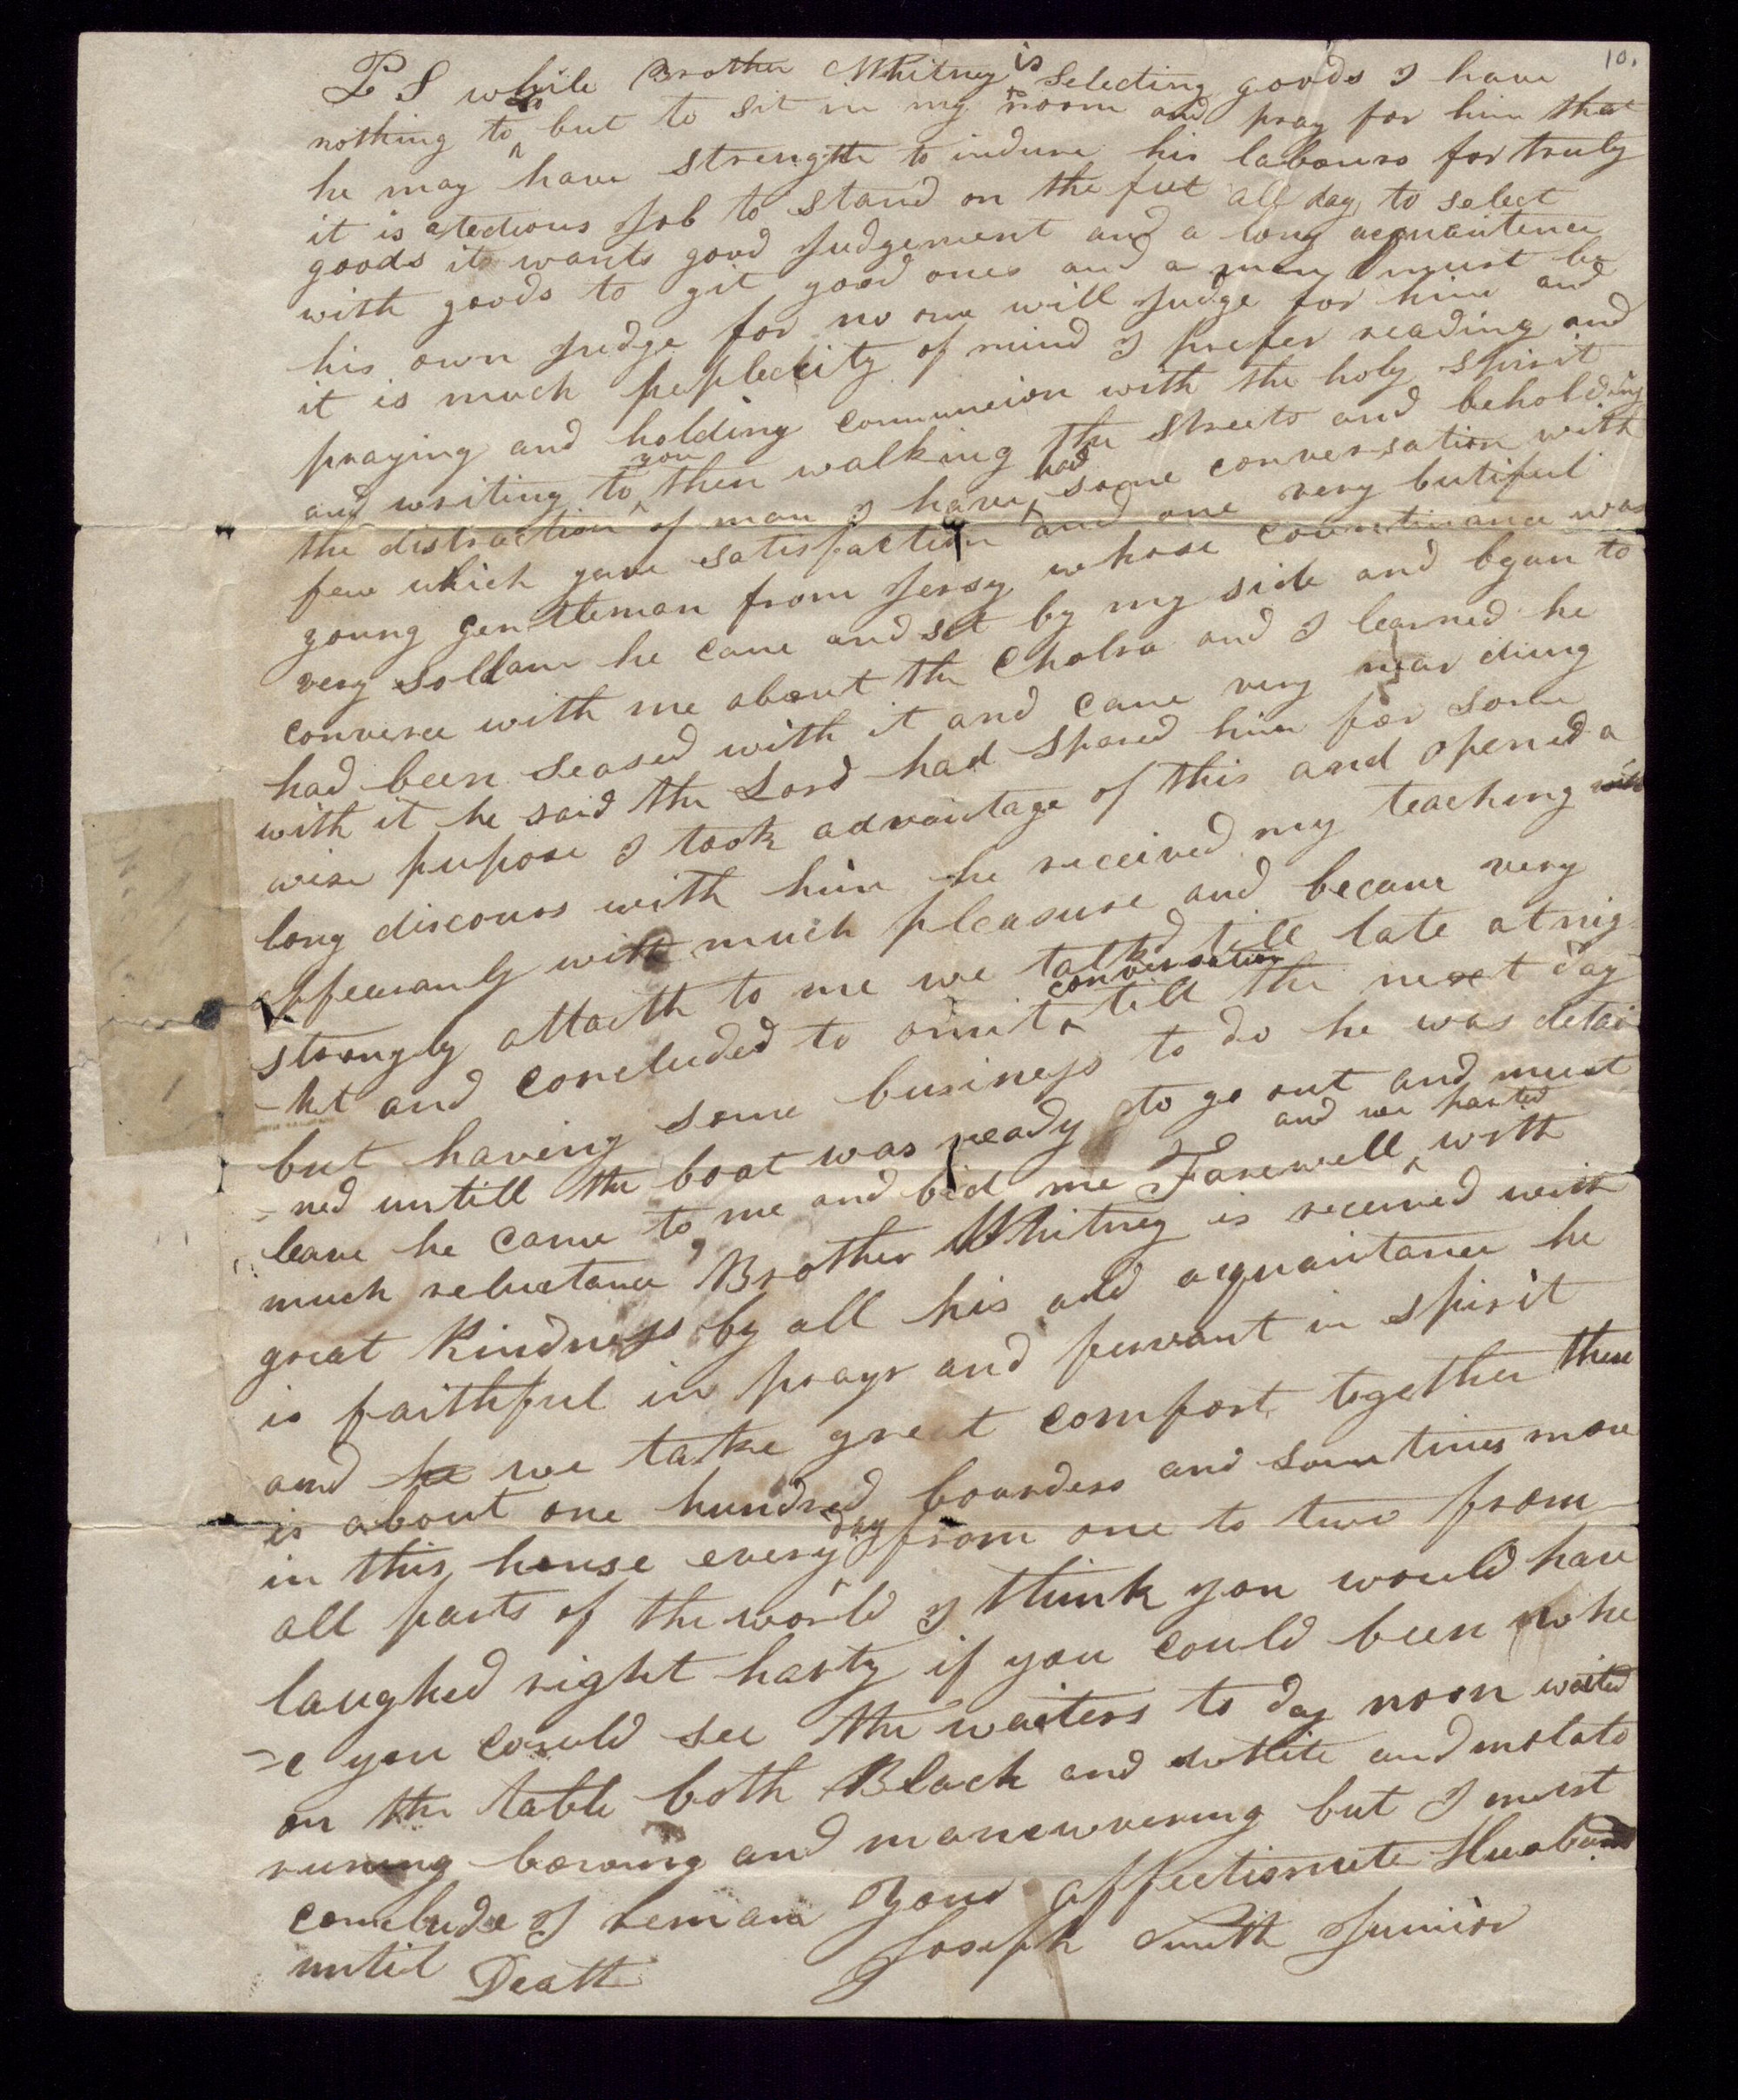 10.
PS while Brother Whitney is Selecting goods I have
nothing to do but to sit in my room and pray for him that
he may have strength to indure his labours for truly
it is a tedious Job to stand on the feet all day to select
goods it wants good Judgement and a long acquaintence
with goods to git good ones and a man must be
his own Judge for no one will Judge for him and
it is much pepleckity of mind I prefer reading and
praying and holding communeion with the holy spirit
and writing to you then walking the streets and beholding
the distraction of man I have had some conversation with
few which gave satisfaction and one very butiful
young gentleman from Jersy whose countinance was
very sollam he came and set by my side and began to
converce with me about the Cholra and I learned he
had been seased with it and came very near diing
with it he said the Lord had spared him for some
wise pupose I took advantage of this and opened a
long discours with him he received my teaching
appearanly with much pleasure and became very
strongly attacth to me we talkd till late at nig
-ht and concluded to omit conversation till the next day
but having some business to do he was detai
-ned untill the boat was ready to go out and must
leave he came to me and bid me Farewell and we parted with
much reluctance Brother Whitney is received with
great kindness by all his old acquaintance he
is faithful in prayr and fervant in spirit
and he we take great comfort together there
is about one hundred boarders and sometimes more
in this house every day from one to two from
all parts of the world I think you would have
laughed right harty if you could been whe
-re you could see the waiters to day noon waited
on the table both Black and white and molato
runing bowing and maneuvering but I must
conclude I reman Your affectionate Husband
until Death Joseph Smith Junior